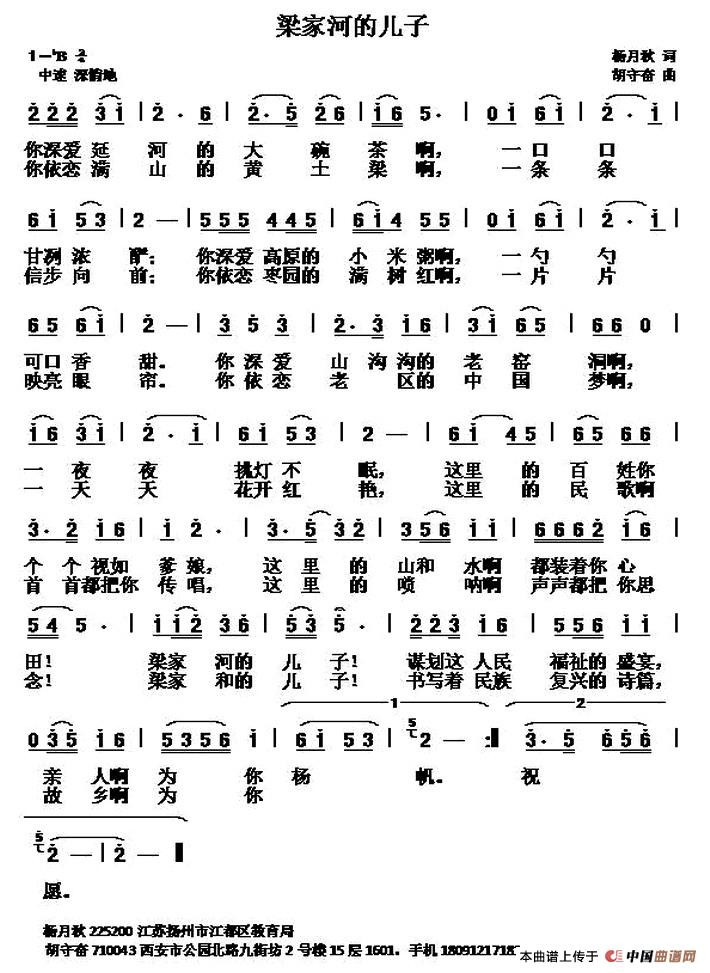 梁家河的儿子
1=♭B 2/4
杨月秋 词
中速 深情地
胡守奋 曲
2 2 2 3 1 | 2 · 6 | 2 · 5 2 6 | 1 6 5 · | 0 1 6 1 | 2 · 1 |
你深爱 延 河 的 大 碗 茶 啊， 一 口 口
你依恋 满 山 的 黄 土 梁 啊， 一 条 条
6 1 5 3 | 2 — | 5 5 5 4 4 5 | 6 1 4 5 5 | 0 1 6 1 | 2 · 1 |
甘冽 浓 酽； 你深爱 高原的 小 米 粥啊， 一 勺 勺
信步 向 前； 你依恋 枣园的 满 树 红啊， 一 片 片
6 5 6 1 | 2 — | 3 5 3 | 2 · 3 1 6 | 3 1 6 5 | 6 6 0 |
可口 香 甜。 你 深 爱 山 沟 沟的 老 窑 洞啊，
映亮 眼 帘。 你 依 恋 老 区的 中 国 梦啊，
1 6 3 1 | 2 · 1 | 6 1 5 3 | 2 — | 6 1 4 5 | 6 5 6 6 |
一 夜 夜 挑灯 不 眠， 这里 的 百 姓你
一 天 天 花开 红 艳， 这里 的 民 歌啊
3 · 2 1 6 | 1 2 · | 3 · 5 3 2 | 3 5 6 1 1 | 6 6 6 2 1 6 |
个 个 视如 爹 娘， 这 里 的 山和 水啊 都装着你 心
首 首都把你 传 唱， 这 里 的 唢 呐啊 声声都把 你思
5 4 5 · | 1 1 2 3 6 | 5 3 5 · | 2 2 3 1 6 | 5 5 6 1 1 |
田！ 梁家 河的 儿 子！ 谋划这 人民 福祉的 盛宴，
念！ 梁家 和的 儿 子！ 书写着 民族 复兴的 诗篇，
1 2
0 3 5 1 6 | 5 3 5 6 1 | 6 1 5 3 | 2 — :‖ 3 · 5 | 6 5 6 |
亲 人啊 为 你 杨 帆。 祝
故 乡啊 为 你
2 — | 2 — ‖
愿。
杨月秋 225200 江苏扬州市江都区教育局
胡守奋 710043 西安市公园北路九街坊 2 号楼 15 层 1601。手机 1809121718
本曲谱上传于 中国曲谱网